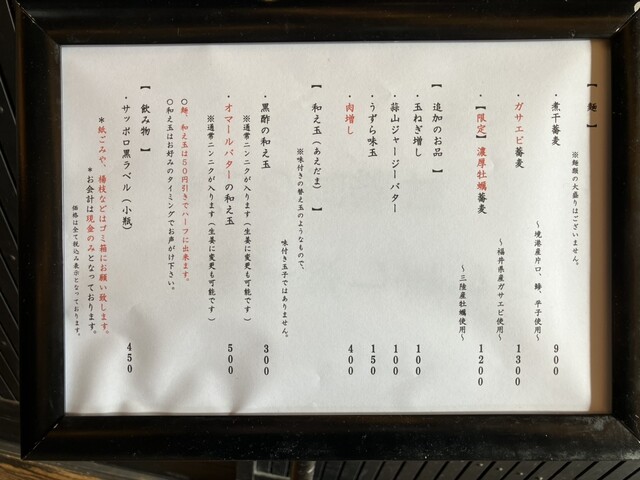 【 麺 】
※麺類の大盛りはございません。
・煮干蕎麦 900
～境港産片口、鯵、平子使用～
・ガサエビ蕎麦 1300
～福井県産ガサエビ使用～
・【限定】濃厚牡蠣蕎麦 1200
～三陸産牡蠣使用～
【 追加のお品 】
・玉ねぎ増し 100
・蒜山ジャージーバター 100
・うずら味玉 150
・肉増し 400
【 和え玉（あえだま） 】
※味付きの替え玉のようなもので、
味付き玉子ではありません。
・黒酢の和え玉 300
※通常ニンニクが入ります（生姜に変更も可能です）
・オマールバターの和え玉 500
※通常ニンニクが入ります（生姜に変更も可能です）
〇麺、和え玉は50円引きでハーフに出来ます。
〇和え玉はお好みのタイミングでお声がけ下さい。
【 飲み物 】
・サッポロ黒ラベル（小瓶） 450
＊紙ごみや、楊枝などはゴミ箱にお願い致します。
＊お会計は現金のみとなっております。
価格は全て税込み表示となっております。